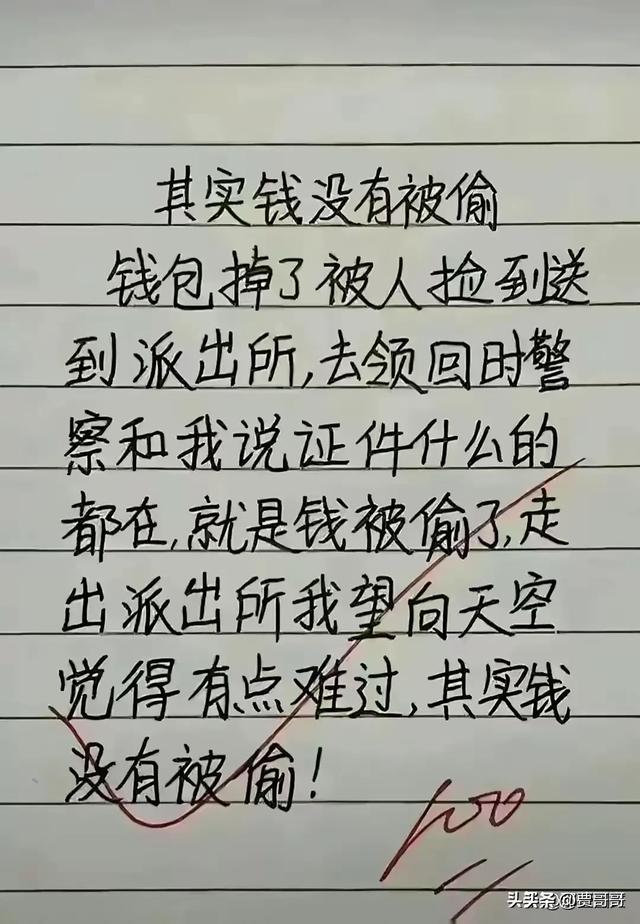 其实钱没有被偷
钱包掉了被人捡到送
到派出所,去领回时警
察和我说证件什么的
都在,就是钱被偷了,走
出派出所我望向天空
觉得有点难过,其实钱
没有被偷!
100
头条@贾哥哥